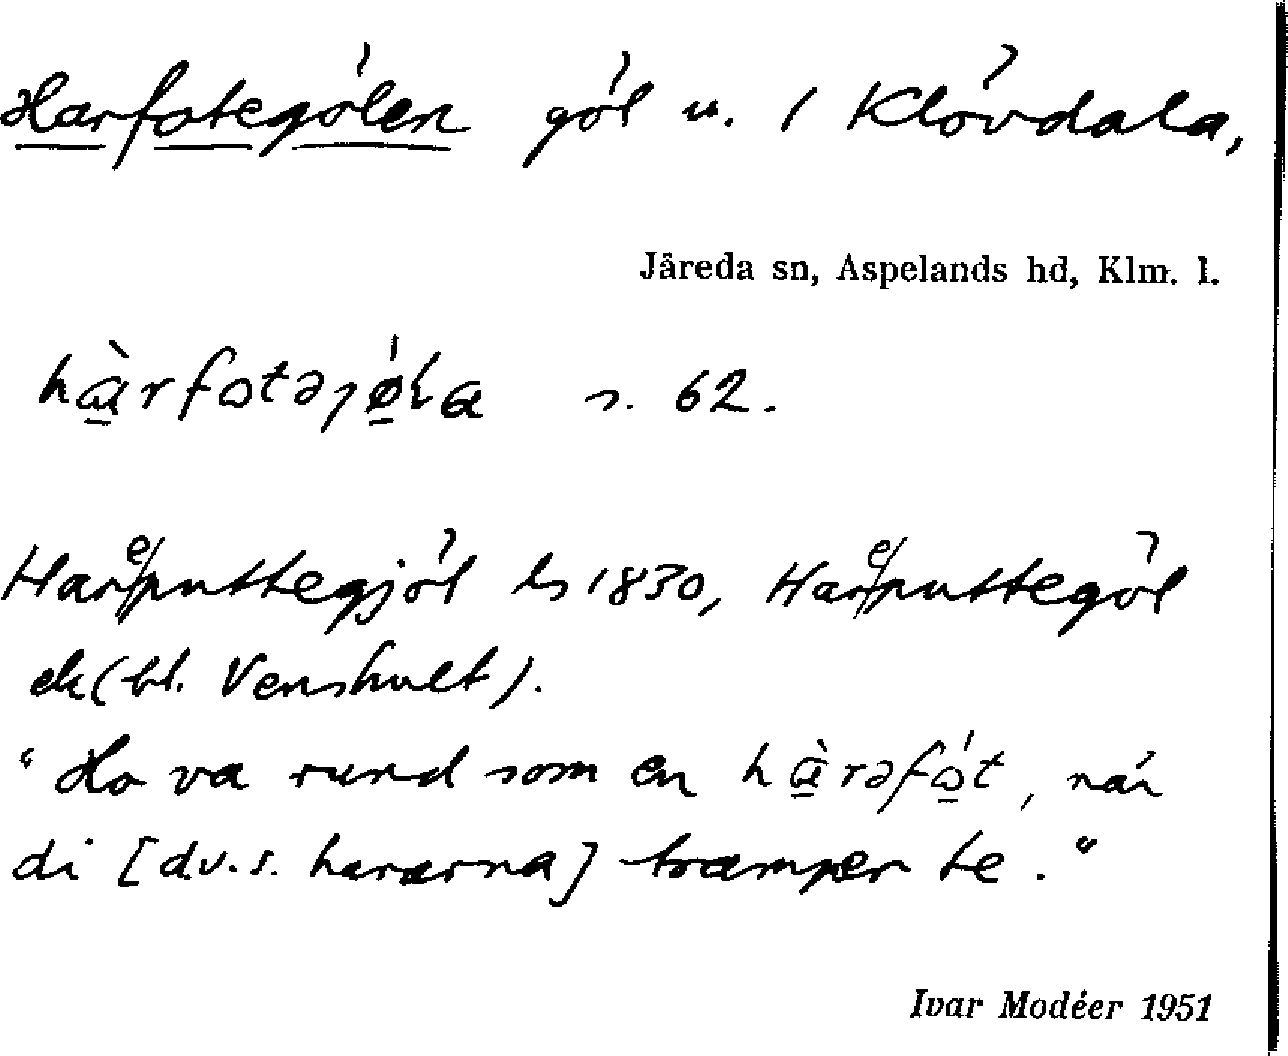 Harfotegölen göl u. 1 Klövdala,
Järeda sn, Aspelands hd, Klm. l.
hàrfɷtəȷǿla s. 62.
Hareputtegjöl ls 1830, Hareputtegöl
ek (bl. Venshult).
"Ho va rund som en hàrəfɷ́t, när
di [dv.s. hararna] tramper te."
Ivar Modéer 1951